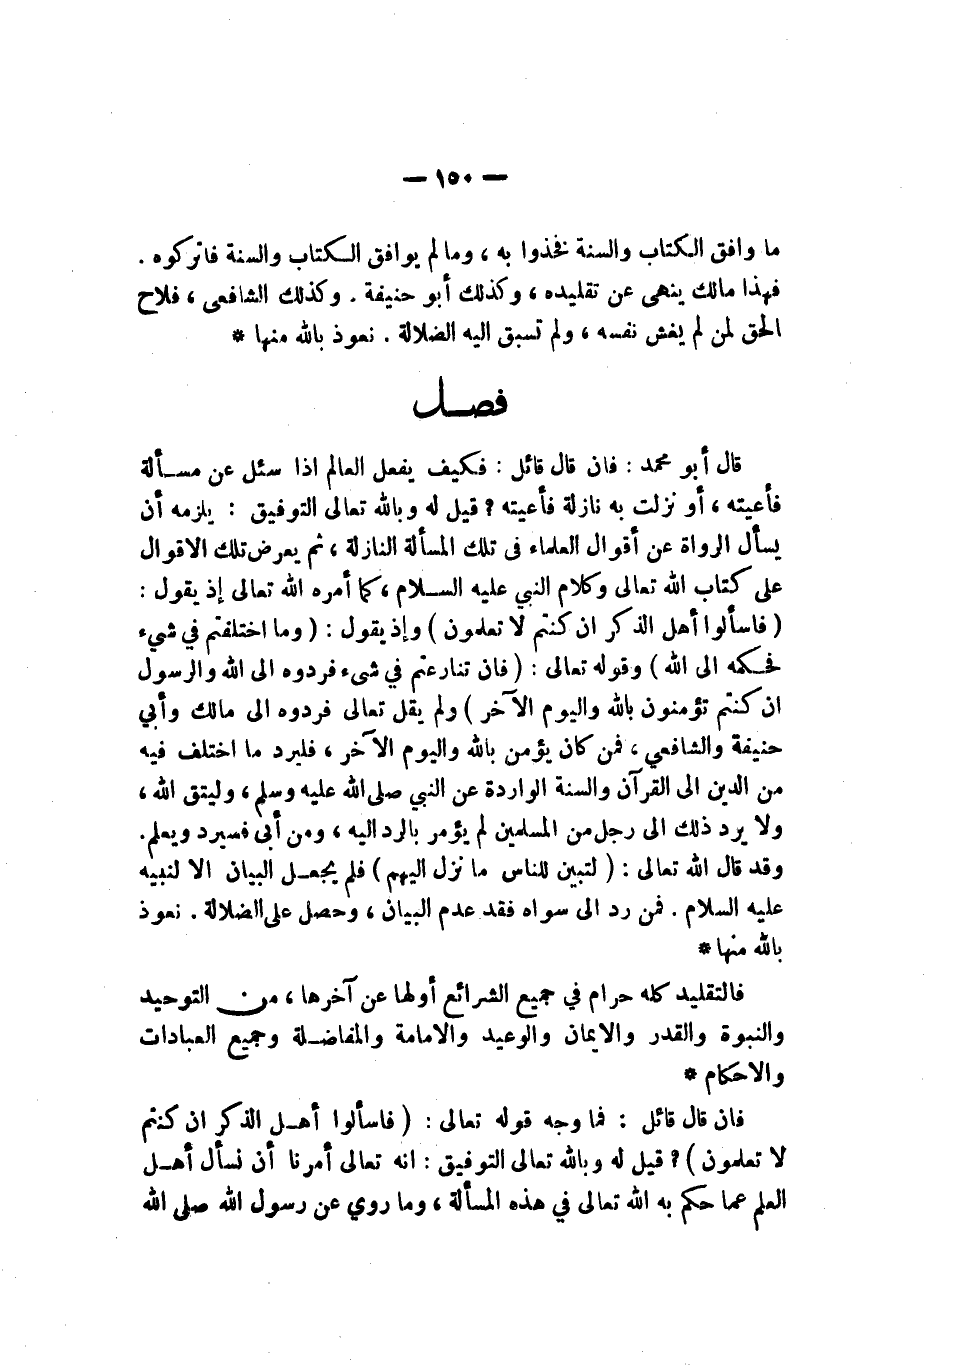 — ١٥٠ —
ما وافق الكتاب والسنة فخذوا به ، وما لم يوافق الكتاب والسنة فاتركوه .
فهذا مالك ينهى عن تقليده ، وكذلك أبو حنيفة . وكذلك الشافعى ، فلاح
الحق لمن لم يغش نفسه ، ولم تسبق اليه الضلالة . نعوذ بالله منها *
فصل
قال أبو محمد : فان قال قائل : فكيف يفعل العالم اذا سئل عن مسألة
فأعيته ، أو نزلت به نازلة فأعيته ? قيل له وبالله تعالى التوفيق : يلزمه أن
يسأل الرواة عن أقوال العلماء فى تلك المسألة النازلة ، ثم يعرض تلك الاقوال
على كتاب الله تعالى وكلام النبي عليه السلام ، كما أمره الله تعالى إذ يقول :
( فاسألوا أهل الذكر ان كنتم لا تعلمون ) وإذ يقول : ( وما اختلفتم في شيء
فحكمه الى الله ) وقوله تعالى : ( فان تنازعتم في شىء فردوه الى الله والرسول
ان كنتم تؤمنون بالله واليوم الآخر ) ولم يقل تعالى فردوه الى مالك وأبي
حنيفة والشافعي ، فمن كان يؤمن بالله واليوم الآخر ، فليرد ما اختلف فيه
من الدين الى القرآن والسنة الواردة عن النبي صلى الله عليه وسلم ، وليتق الله ،
ولا يرد ذلك الى رجل من المسلمين لم يؤمر بالرد اليه ، ومن أبى فسيرد ويعلم.
وقد قال الله تعالى : ( لتبين للناس ما نزل اليهم ) فلم يجعل البيان الا لنبيه
عليه السلام . فمن رد الى سواه فقد عدم البيان ، وحصل على الضلالة . نعوذ
بالله منها *
فالتقليد كله حرام في جميع الشرائع أولها عن آخرها ، من التوحيد
والنبوة والقدر والايمان والوعيد والامامة والمفاضلة وجميع العبادات
والاحكام *
فان قال قائل : فما وجه قوله تعالى : ( فاسألوا أهل الذكر ان كنتم
لا تعلمون ) ? قيل له وبالله تعالى التوفيق : انه تعالى أمرنا أن نسأل أهل
العلم عما حكم به الله تعالى في هذه المسألة ، وما روي عن رسول الله صلى الله